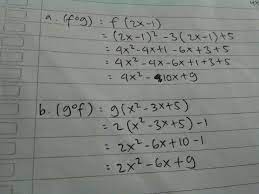 a. (f∘g) : f(2x-1)
= (2x-1)² - 3(2x-1)+5
= 4x² - 4x+1 - 6x+3+5
= 4x² - 4x - 6x+1+3+5
= 4x² - 10x+9
b. (g∘f) : g(x²-3x+5)
= 2(x²-3x+5)-1
= 2x²-6x+10-1
= 2x²-6x+9